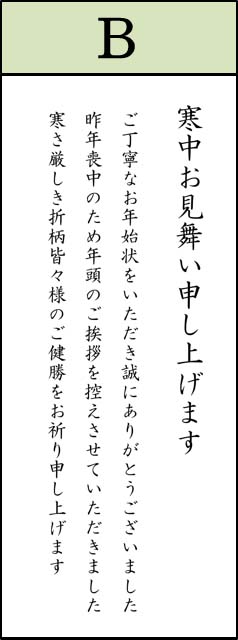 B
寒中お見舞い申し上げます
ご丁寧なお年始状をいただき誠にありがとうございました
昨年喪中のため年頭のご挨拶を控えさせていただきました
寒さ厳しき折柄皆々様のご健勝をお祈り申し上げます